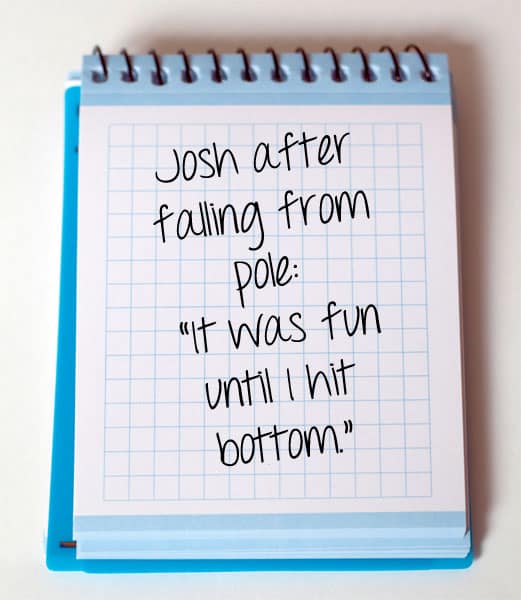 Josh after
falling from
pole:
"It was fun
until I hit
bottom."